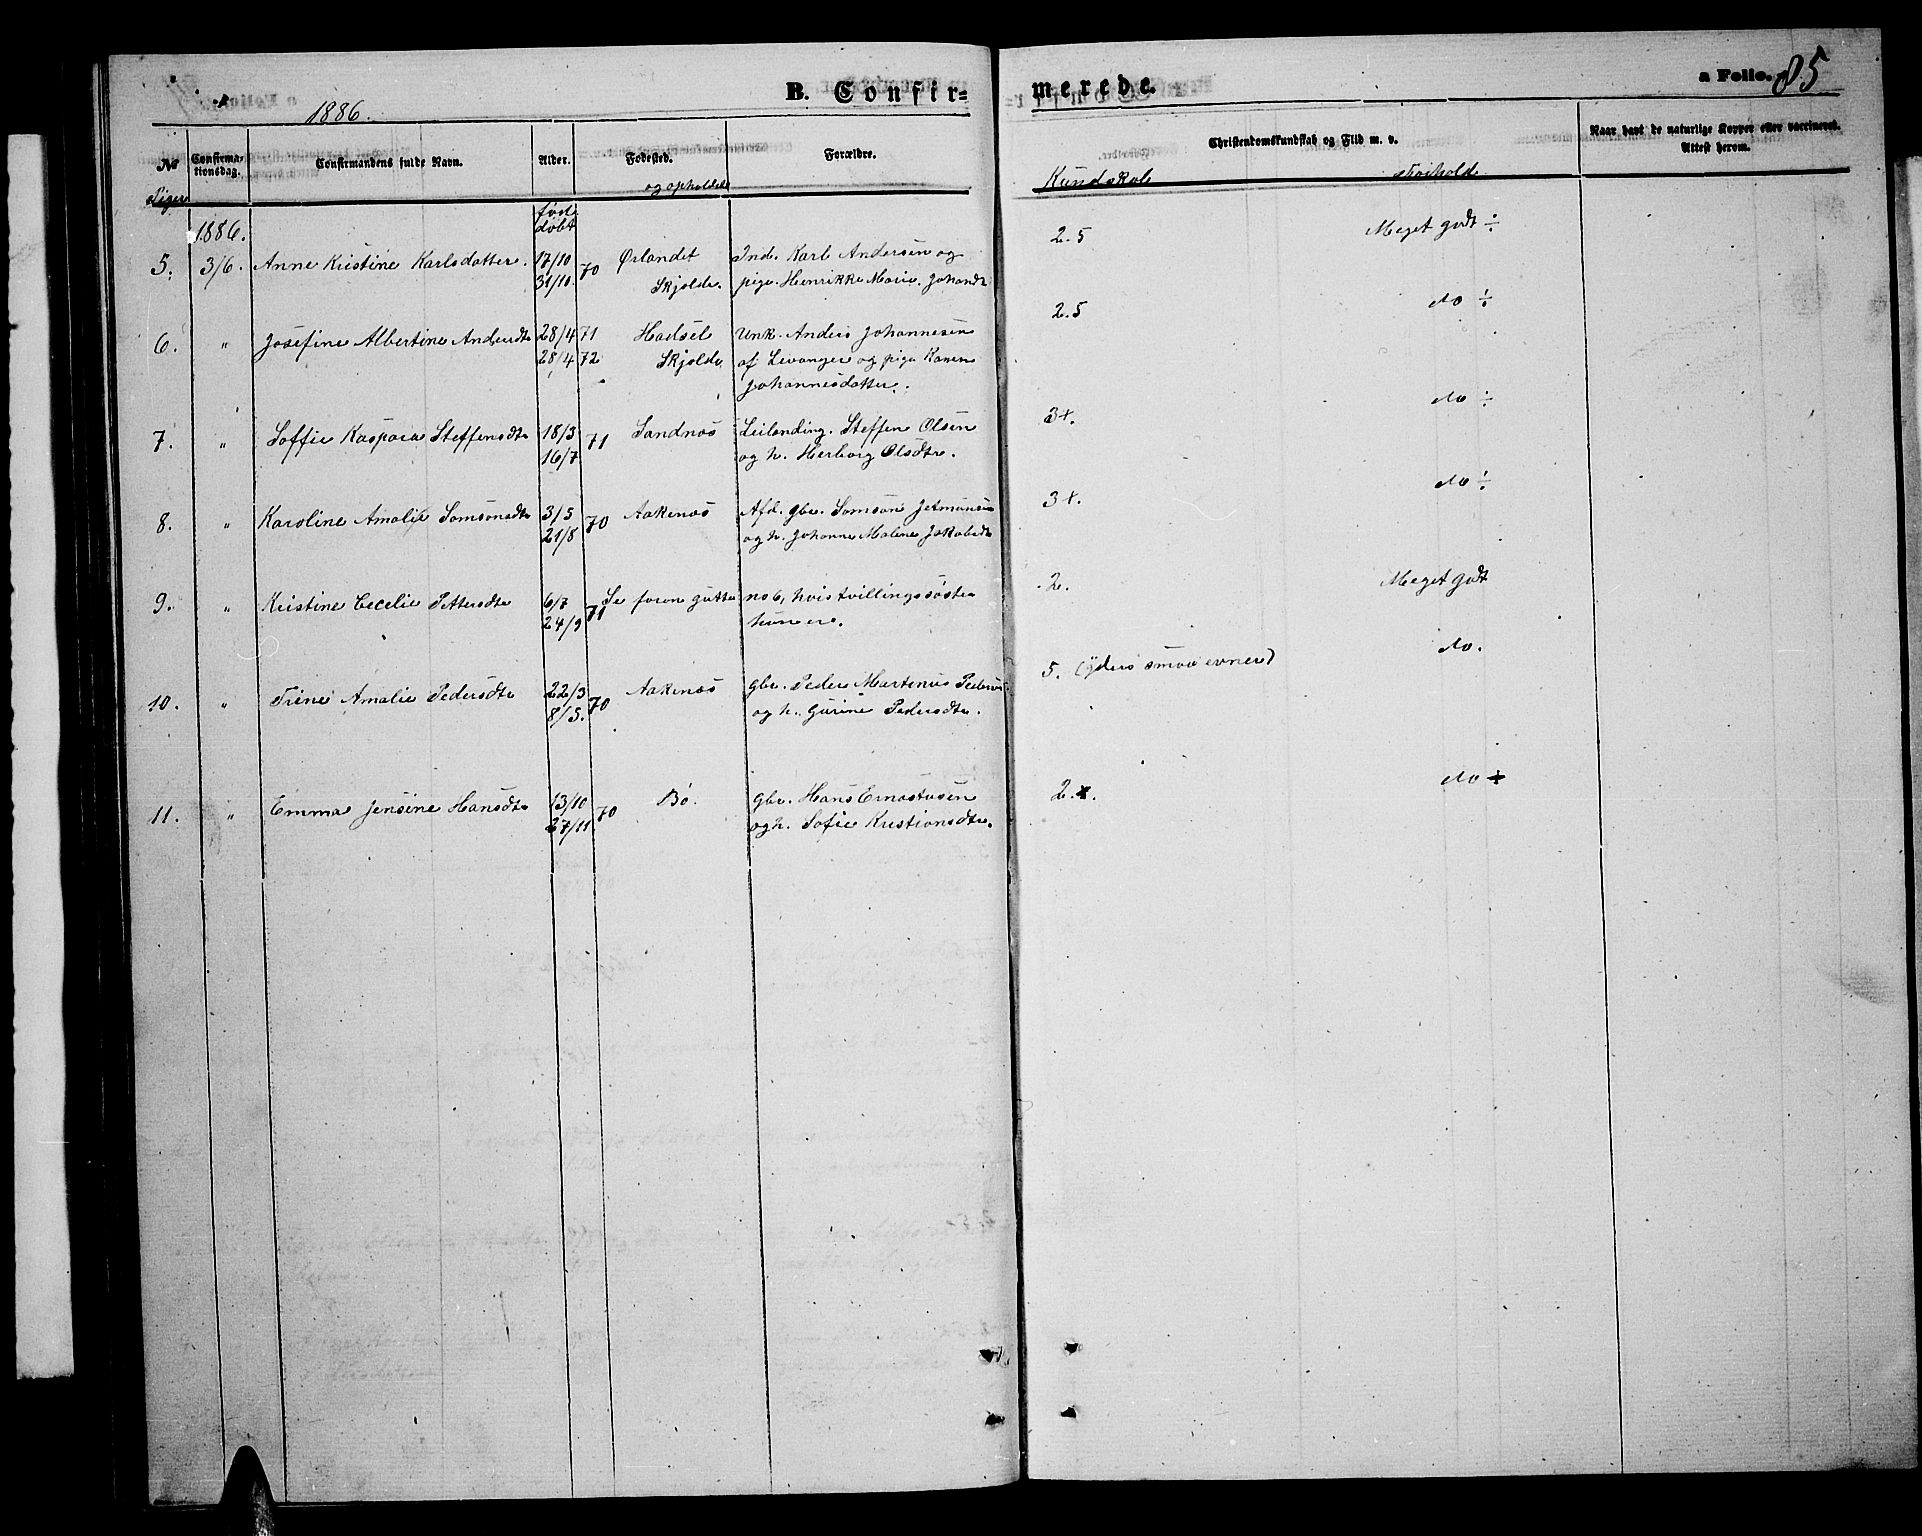 1886.
B. Confirmerede.
a Folio. 85
No
Confirmationsdag.
Confirmandens fulde Navn.
Alder.
Fødested. og ophold
Forældre.
Christendomskundskab og Flid m. v.
Kundskab
Forhold
Naar havt de naturlige Kopper eller vaccineret. Attest herom.
Piger
1886.
født døbt
5. 3/6. Anne Kristine Karlsdatter. 17/10 31/10 70 Ørlandet Skjolde. Ind. Karl Andersen og pige Henrikke Marie Johansdtr 2.5 Meget godt ÷
6. " Josefine Albertine Andersdtr 28/4 71 28/4 72 Hadsel Skjolde Unk. Anders Johannesen af Levanger og pige Karen Johannesdatter. 2.5 do ÷
7. " Soffie Kaspara Steffensdtr 18/3 16/7 71 Sandnes Leilænding. Steffen Olsen og h. Herborg Olsdtr. 3+. do ÷
8. " Karoline Amalie Samsonsdtr 3/5 21/8 70 Aakenes Afd. gbr. Samson Jetmunsen og h. Johanna Malene Jakobsdtr 3+. do ÷
9. " Kristine Cecelie Pettersdtr 6/7 24/9 71 Se foran gutter no 6, hvis tvillingsøster hun er. 2. Meget godt
10. " Trine Amalie Pedersdtr 22/3 8/5. 70 Aakenes gbr. Peder Martinus Pedersen og h. Gurine Pedersdtr. 5. (yders smaa evner) do.
11. " Emma Jensine Hansdtr 13/10 27/11. 70 Bø. gbr. Hans Ernastusen og h. Sofie Kristiansdtr. 2.+. do +